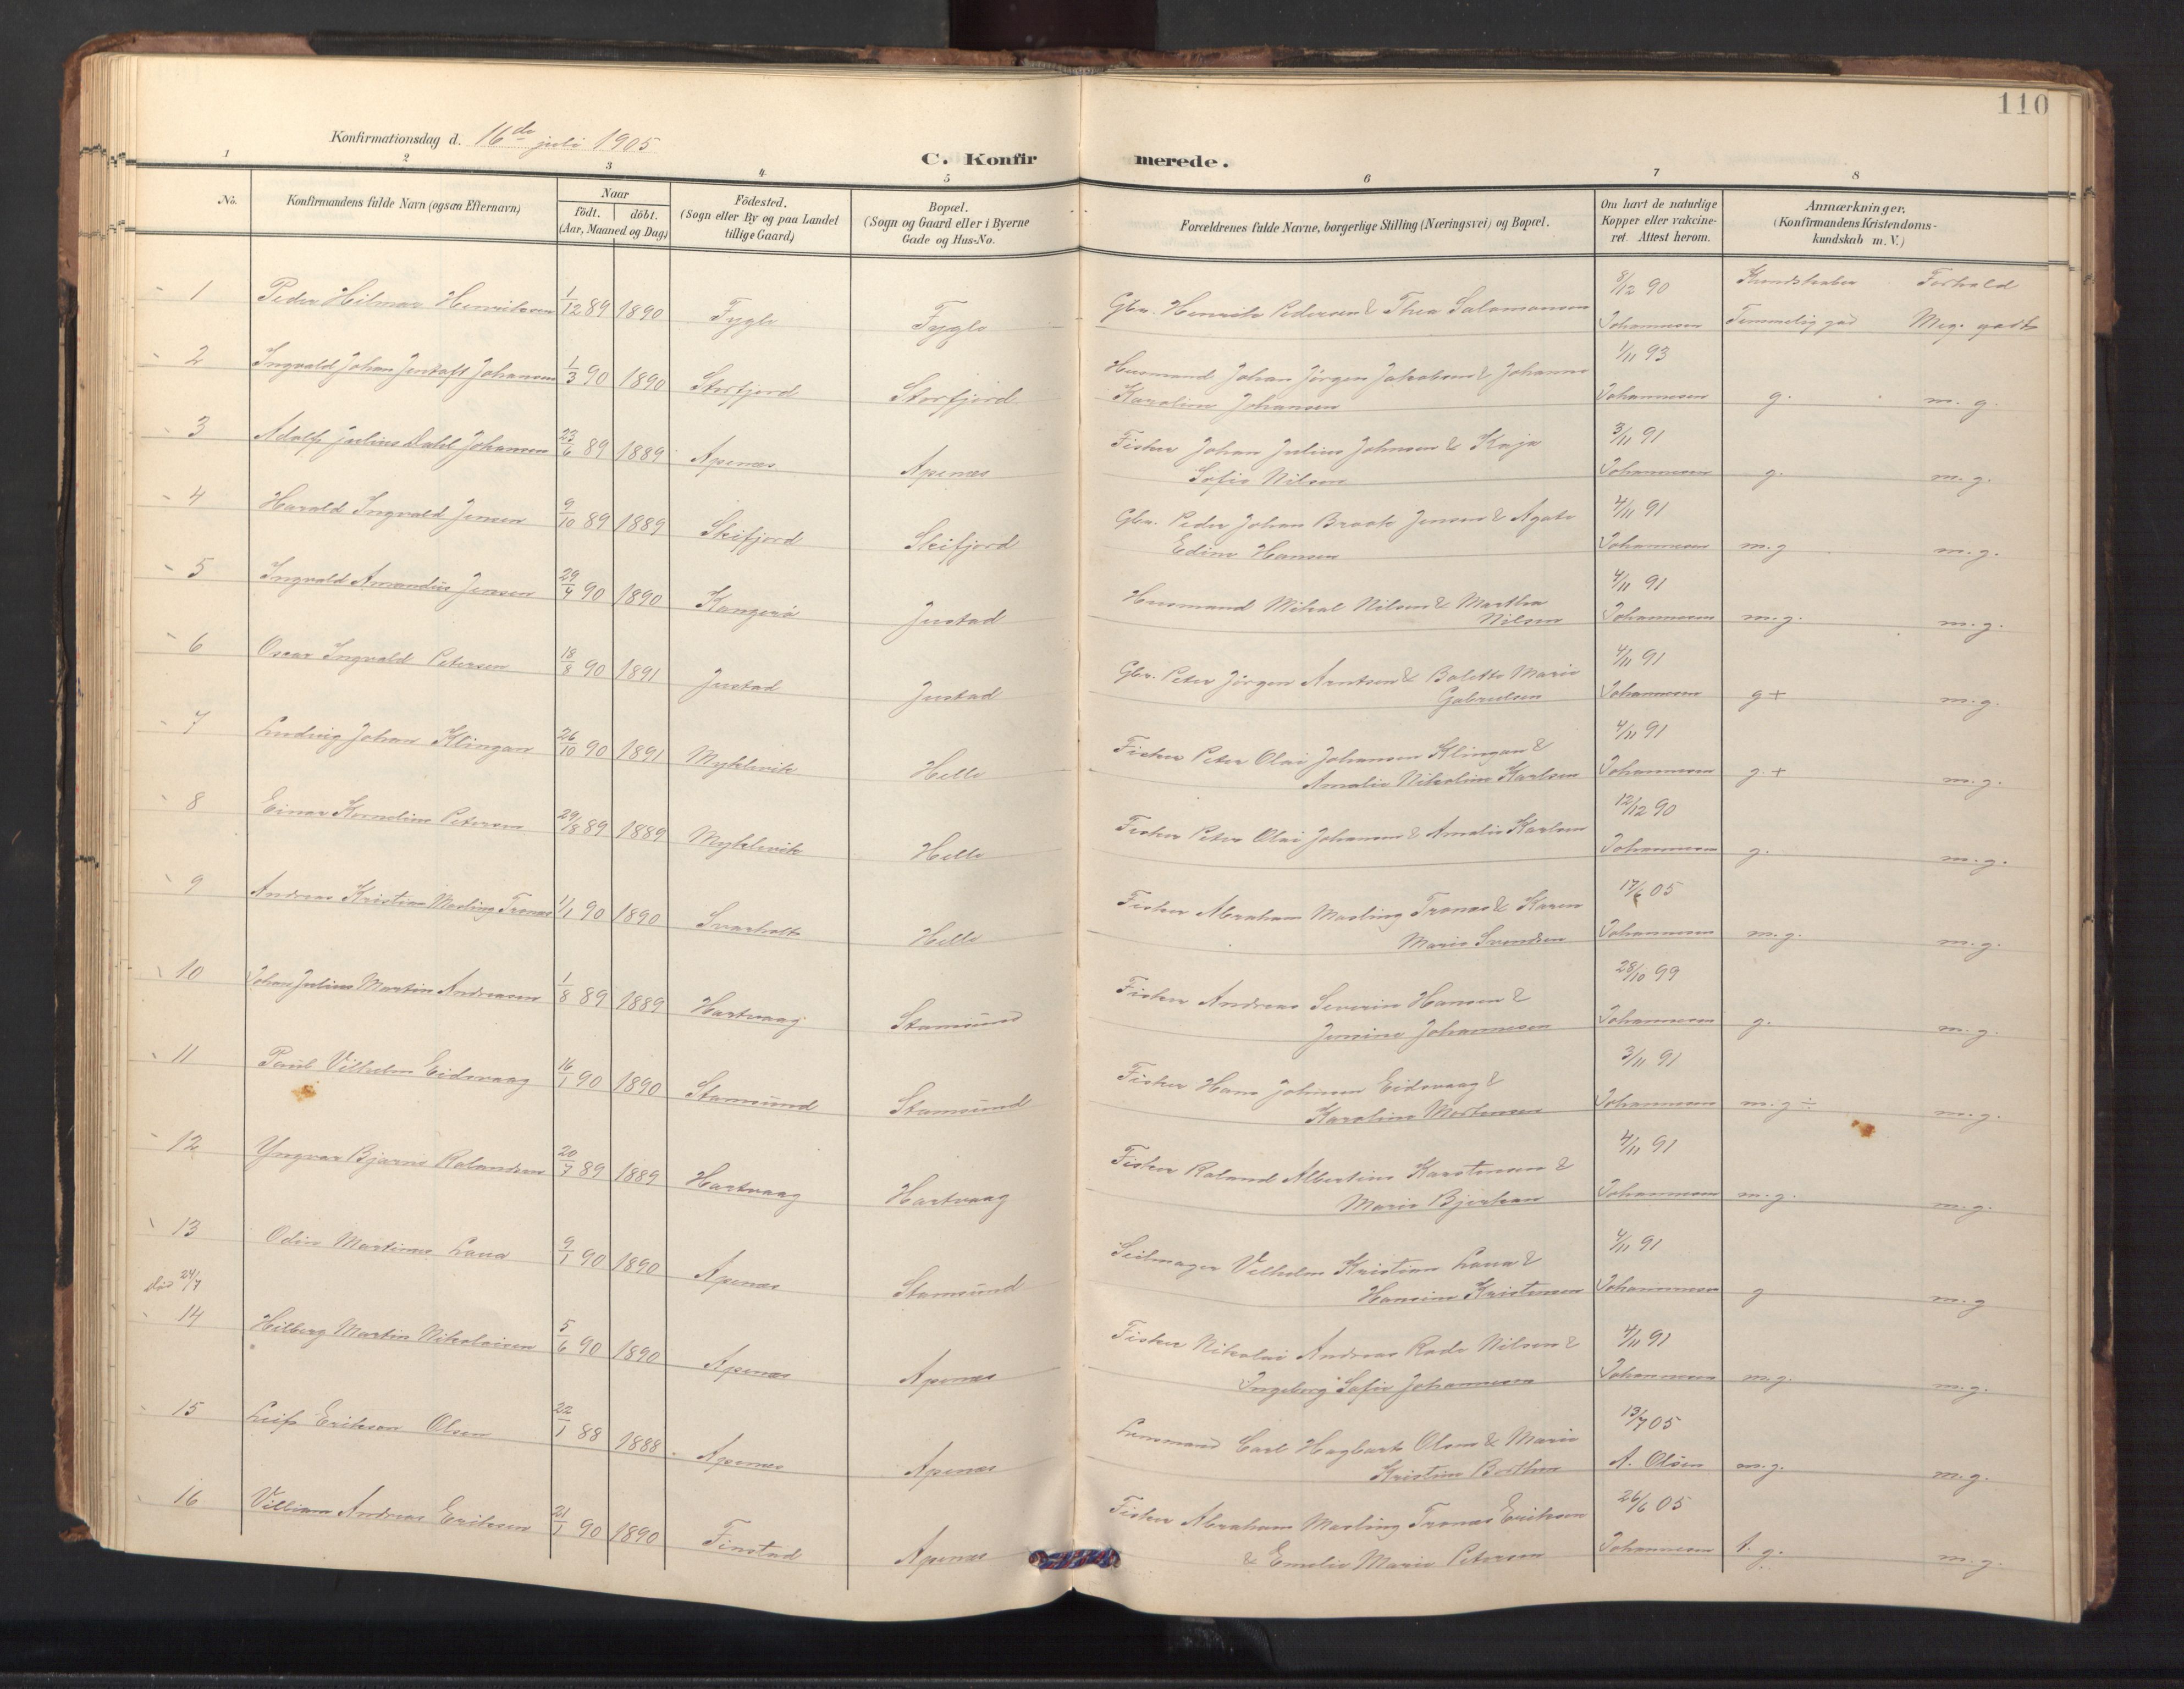 110
Konfirmationsdag d. 16de juli 1905
C. Konfirmerede.
1 2 3 4. 5 6 7 8
No. Konfirmandens fulde Navn (ogsaa Efternavn) Naar født. døbt. (Aar, Maaned og Dag.) Fødested. (Sogn eller By og paa Landet tillige Gaard) Bopæl. (Sogn og Gaard eller i Byerne Gade og Hus-No. Forældrenes fulde Navne, borgerlige Stilling (Næringsvei) og Bopæl. Om havt de naturlige Kopper eller vakcineret. Attest herom. Anmærkninger. (Konfirmandens Kristendomskundskab m. V.)
Kundskaber Forhold
1 Peder Hilmar Henriksen 1/12 89 1890 Fygle Fygle Gbr. Henrik Pedersen & Thea Salamonsen 8/12 90 Johannesen Temmelig god Meg. godt
2 Ingvald Johan Jentoft Johansen 1/3 90 1890 Storfjord Storfjord Husmand Johan Jörgen Jakobsen & Johanna
Karoline Johansen 1/11 93 Johannesen g. m. g.
3 Adolf Julius Dahl Johansen 23/6 89 1889 Apenes Apenes Fisker Johan Julius Johnsen & Kaja
Sofie Nilsen 3/11 91 Johannesen g. m. g.
4 Harald Ingvald Jensen 9/10 89 1889 Skifjord Skifjord Gbr. Peder Johan Jensen & Agate
Edine Hansen 4/11 91 Johannesen m. g m. g.
5 Ingvald Amandus Jensen 29/4 90 1890 Kangerö Justad Husmand Mikal Nilsen & Martha
Nilsen 4/11 91 Johannesen m. g. m. g.
6 Oscar Ingvald Petersen 18/8 90 1891 Justad Justad Gbr. Peter Jörgen Arntsen & Bolette Marie
Gabrielsen 4/11 91 Johannesen g + m. g.
7 Ludvig Johan Klingan 26/10 90 1891 Myklevik Helle Fisker Peter Olai Johansen Klingan &
Amalie Nikoline Karlsen 4/11 91 Johannesen g + m. g.
8 Einar Kornelius Petersen 29/8 89 1889 Myklevik Helle Fisker Peter Olai Johansen & Amalie Karlsen 12/12 90 Johannesen g. m. g.
9 Andreas Kristian Masling Tronæs 1/1 90 1890 Svarholt Helle Fisker Abraham Masling Tronæs & Karen
Marie Svendsen 17/6 05 Johannesen m. g. m. g.
10 Johan Julius Martin Andreasen 1/8 89 1889 Hartvaag Stamsund Fisker Andreas Severin Hansen &
Jensine Johannesen 28/10 99 Johannesen g. m. g.
11 Paul Vilhelm Eidsvaag 16/1 90 1890 Stamsund Stamsund Fisker Hans Johnsen Eidsvaag &
Karoline Mortensen 3/11 91 Johannesen m. g ÷ m. g.
12 Yngvar Bjarne Rolandsen 20/7 89 1889 Hartvaag Hartvaag Fisker Roland Albertin Karstensen &
Marie Bjerkan 4/11 91 Johannesen m. g. m. g.
13 Odin Martinus Laua 9/1 90 1890 Apenes Stamsund Seilmager Vilhelm Kristian Laua &
död 24/7 Hansine Kristensen 4/11 91 Johannesen g m. g
14 Hilberg Martin Nikolaisen 5/6 90 1890 Apenes Apenes Fisker Nikolai Andreas Rade Nilsen &
Ingeborg Sofie Johannesen 4/11 91 Johannesen m. g. m. g.
15 Leif Erikson Olsen 22/1 88 1888 Apenes Apenes Lensmand Carl Hagbart Olsen & Marie
Kristine Berthen 13/7 05 A. Olsen m. g. m. g.
16 Villiam Andreas Eriksen 21/1 90 1890 Finstad Apenes Fisker Abraham Masling Tronæs Eriksen
& Emelie Marie Petersen 26/6 05 Johannesen t. g. m. g.